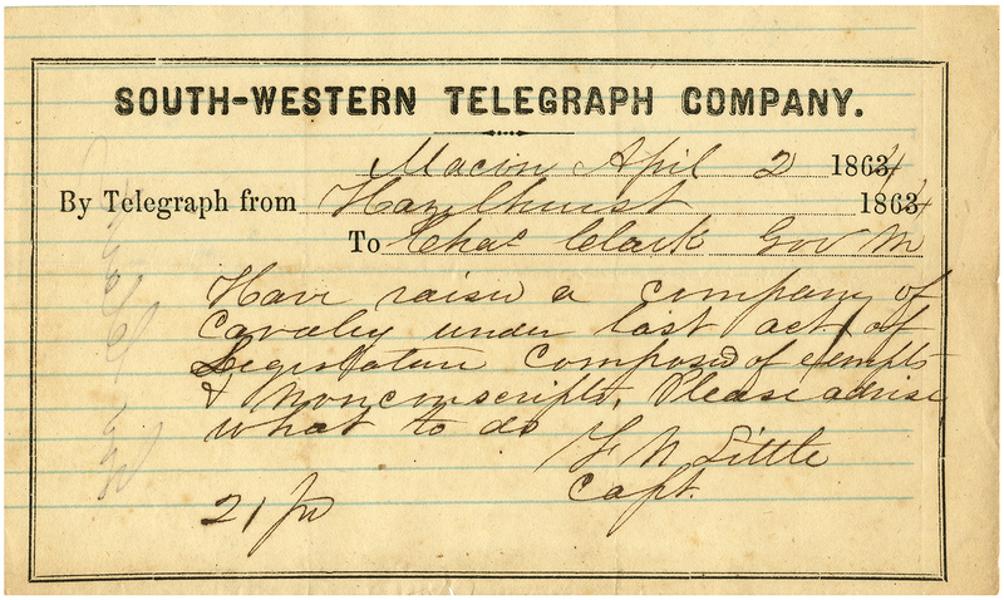 SOUTH-WESTERN TELEGRAPH COMPANY.
Macon April 2 18634
By Telegraph from Hazlhurst 18634
To Chas Clark Gov M
Have raisd a company of
Cavalry under last act of
Legislature Composed of exempts
& Nonconscripts, Please advise
what to do
Little
Capt.
21